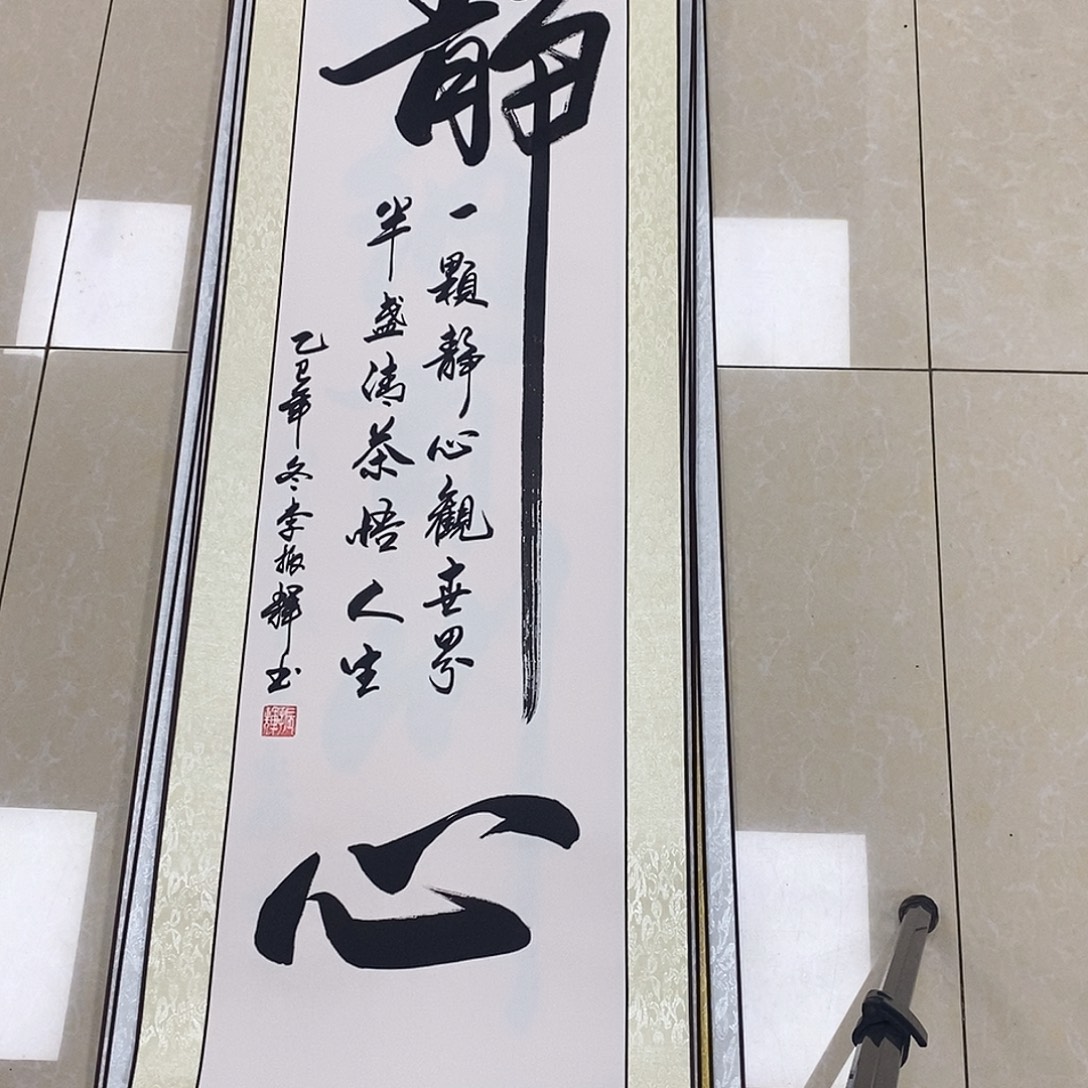 靜心
一顆靜心觀世界
半盞清茶悟人生
乙巳年冬李振輝书
振輝